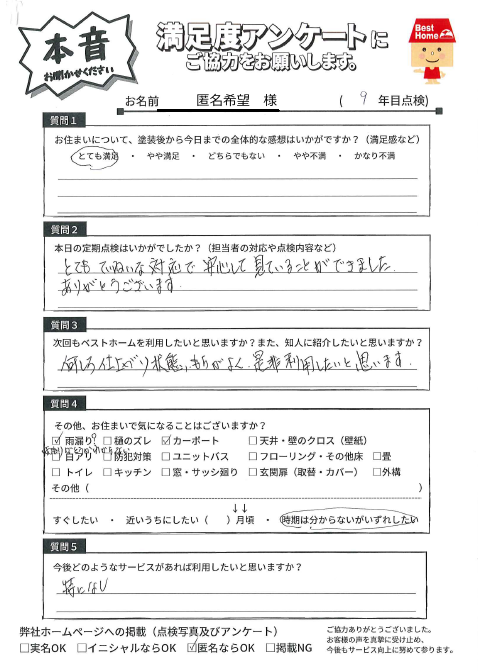 本音
お聞かせください
満足度アンケートに
ご協力をお願いします。
Best Home
お名前 匿名希望 様 ( 9 年目点検)
質問1
お住まいについて、塗装後から今日までの全体的な感想はいかがですか？（満足感など）
とても満足 ・ やや満足 ・ どちらでもない ・ やや不満 ・ かなり不満
質問2
本日の定期点検はいかがでしたか？（担当者の対応や点検内容など）
とても ていねいな対応で 安心して見ていることができました.
ありがとうございます.
質問3
次回もベストホームを利用したいと思いますか？また、知人に紹介したいと思いますか？
何しろ仕上がり状態、もちがよく. 是非利用したいと思います.
質問4
その他、お住まいで気になることはございますか？
☑雨漏り? □樋のズレ ☑カーポート □天井・壁のクロス（壁紙）
□白アリ □防犯対策 □ユニットバス □フローリング・その他床 □畳
□トイレ □キッチン □窓・サッシ廻り □玄関扉（取替・カバー） □外構
その他（ ）
↓↓
すぐしたい ・ 近いうちにしたい（ ）月頃 ・ 時期は分からないがいずれしたい
質問5
今後どのようなサービスがあれば利用したいと思いますか？
特になし
弊社ホームページへの掲載（点検写真及びアンケート）
□実名OK □イニシャルならOK ☑匿名ならOK □掲載NG
ご協力ありがとうございました。
お客様の声を真摯に受け止め、
今後もサービス向上に努めて参ります。